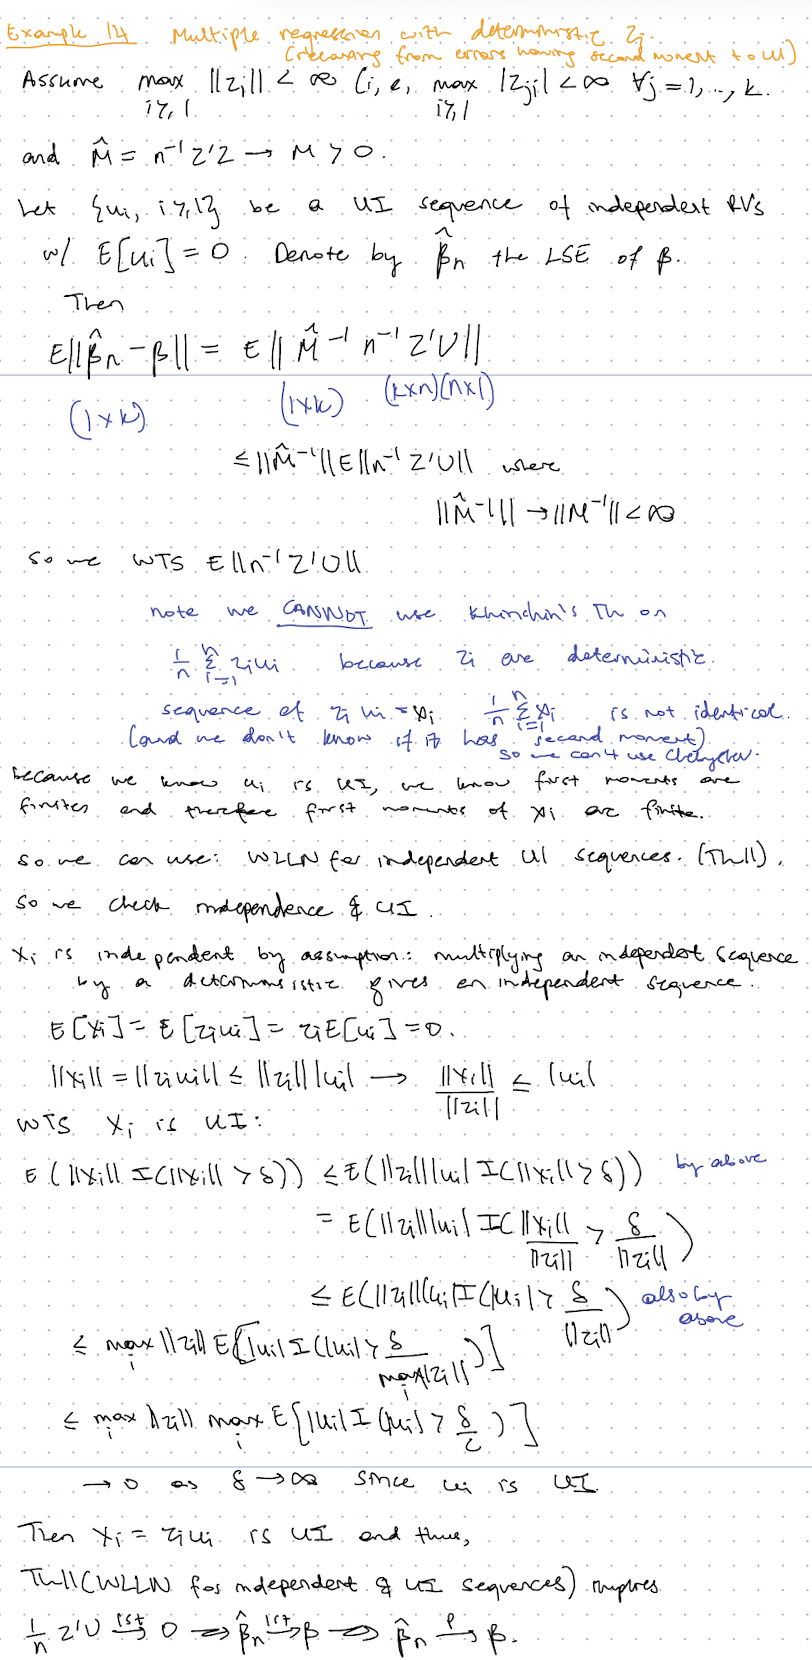 Example 14. Multiple regression with deterministic Zi.
(relaxing from errors having second moment to UI)
Assume max ||zi|| < ∞ (i.e, max |zji| < ∞ ∀j=1,..,k.
i≥1 i≥1
and M̂ = n⁻¹Z'Z → M > 0.
Let {ui, i≥1} be a UI sequence of independent RVs
w/ E[ui] = 0. Denote by β̂n the LSE of β.
Then
E||β̂n - β|| = E||M̂⁻¹ n⁻¹Z'U||
(1×k) (1×k) (k×n)(n×1)
≤ ||M̂⁻¹|| E||n⁻¹Z'U|| where
||M̂⁻¹|| → ||M⁻¹|| < ∞
So we WTS E||n⁻¹Z'U||
note we CANNOT use Khinchin's Th on
1/n Σⁿi=1 ziui because zi are deterministic.
sequence of zi ui = xi 1/n Σⁿi=1 xi is not identical.
(and we don't know if it has second moment)
so we can't use Chebyshev.
because we know ui is UI, we know first moments are
finites and therefore first moments of xi are finite.
So we can use: WLLN for independent UI sequences. (Th11).
So we check independence & UI.
Xi is independent by assumption: multiplying an independent sequence
by a deterministic gives an independent sequence.
E[Xi] = E[ziui] = ziE[ui] = 0.
||Xi|| = ||ziui|| ≤ ||zi|| |ui| → ||Xi||/||zi|| ≤ |ui|
WTS Xi is UI:
E(||Xi|| I(||Xi|| > δ)) ≤ E(||zi|| |ui| I(||Xi|| > δ)) by above
= E(||zi|| |ui| I(||Xi||/||zi|| > δ/||zi||)
≤ E(||zi|| |ui| I(|ui| > δ/||zi||) also by above
≤ max i ||zi|| E[|ui| I(|ui| > δ/max i ||zi||)]
≤ max i ||zi|| max i E[|ui| I(|ui| > δ/c)]
→ 0 as δ → ∞ since ui is UI
Then Xi = ziui is UI and thus,
Th11 (WLLN for independent & UI sequences) implies
1/n Z'U →1st 0 ⇒ β̂n →1st β ⇒ β̂n →p β.